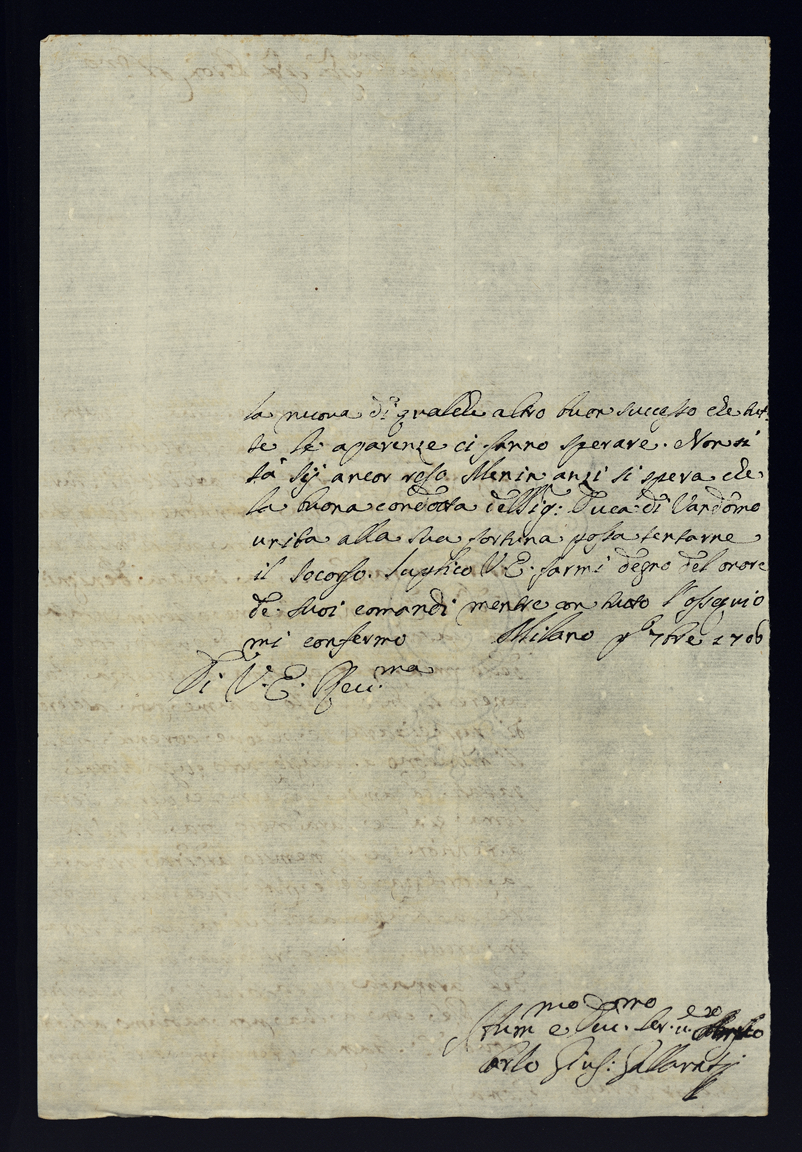 la nuova di qualche altro buon successo che tut-
te le aparenze ci fanno sperare. Non si
sà sij ancor resa Menin anzi si spera che
la buona condotta del Sig.r Duca di Vandomo
unita alla sua fortuna possa tentarne
il socorso. Suplico V. E. farmi degno del onore
de suoi comandi mentre con tutto l'ossequio
mi confermo Milano p.o 7bre 1706
Di V. E. Ecc.ma
mo domo
e Duc. Ser.
Carlo Gius: Gallarati